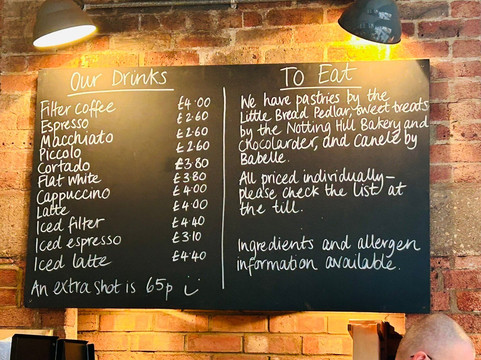 Our Drinks
Filter Coffee £4.00
Espresso £2.60
Macchiato £2.60
Piccolo £2.60
Cortado £3.80
Flat white £3.80
Cappuccino £4.00
Latte £4.00
Iced filter £4.40
Iced espresso £3.10
Iced latte £4.40
An extra shot is 65p
To Eat
We have pastries by the
Little Bread Pedlar, sweet treats
by the Notting Hill Bakery and
Chocolarder, and Canelé by
Babelle.
All priced individually-
please check the list at
the till.
Ingredients and allergen
information available.